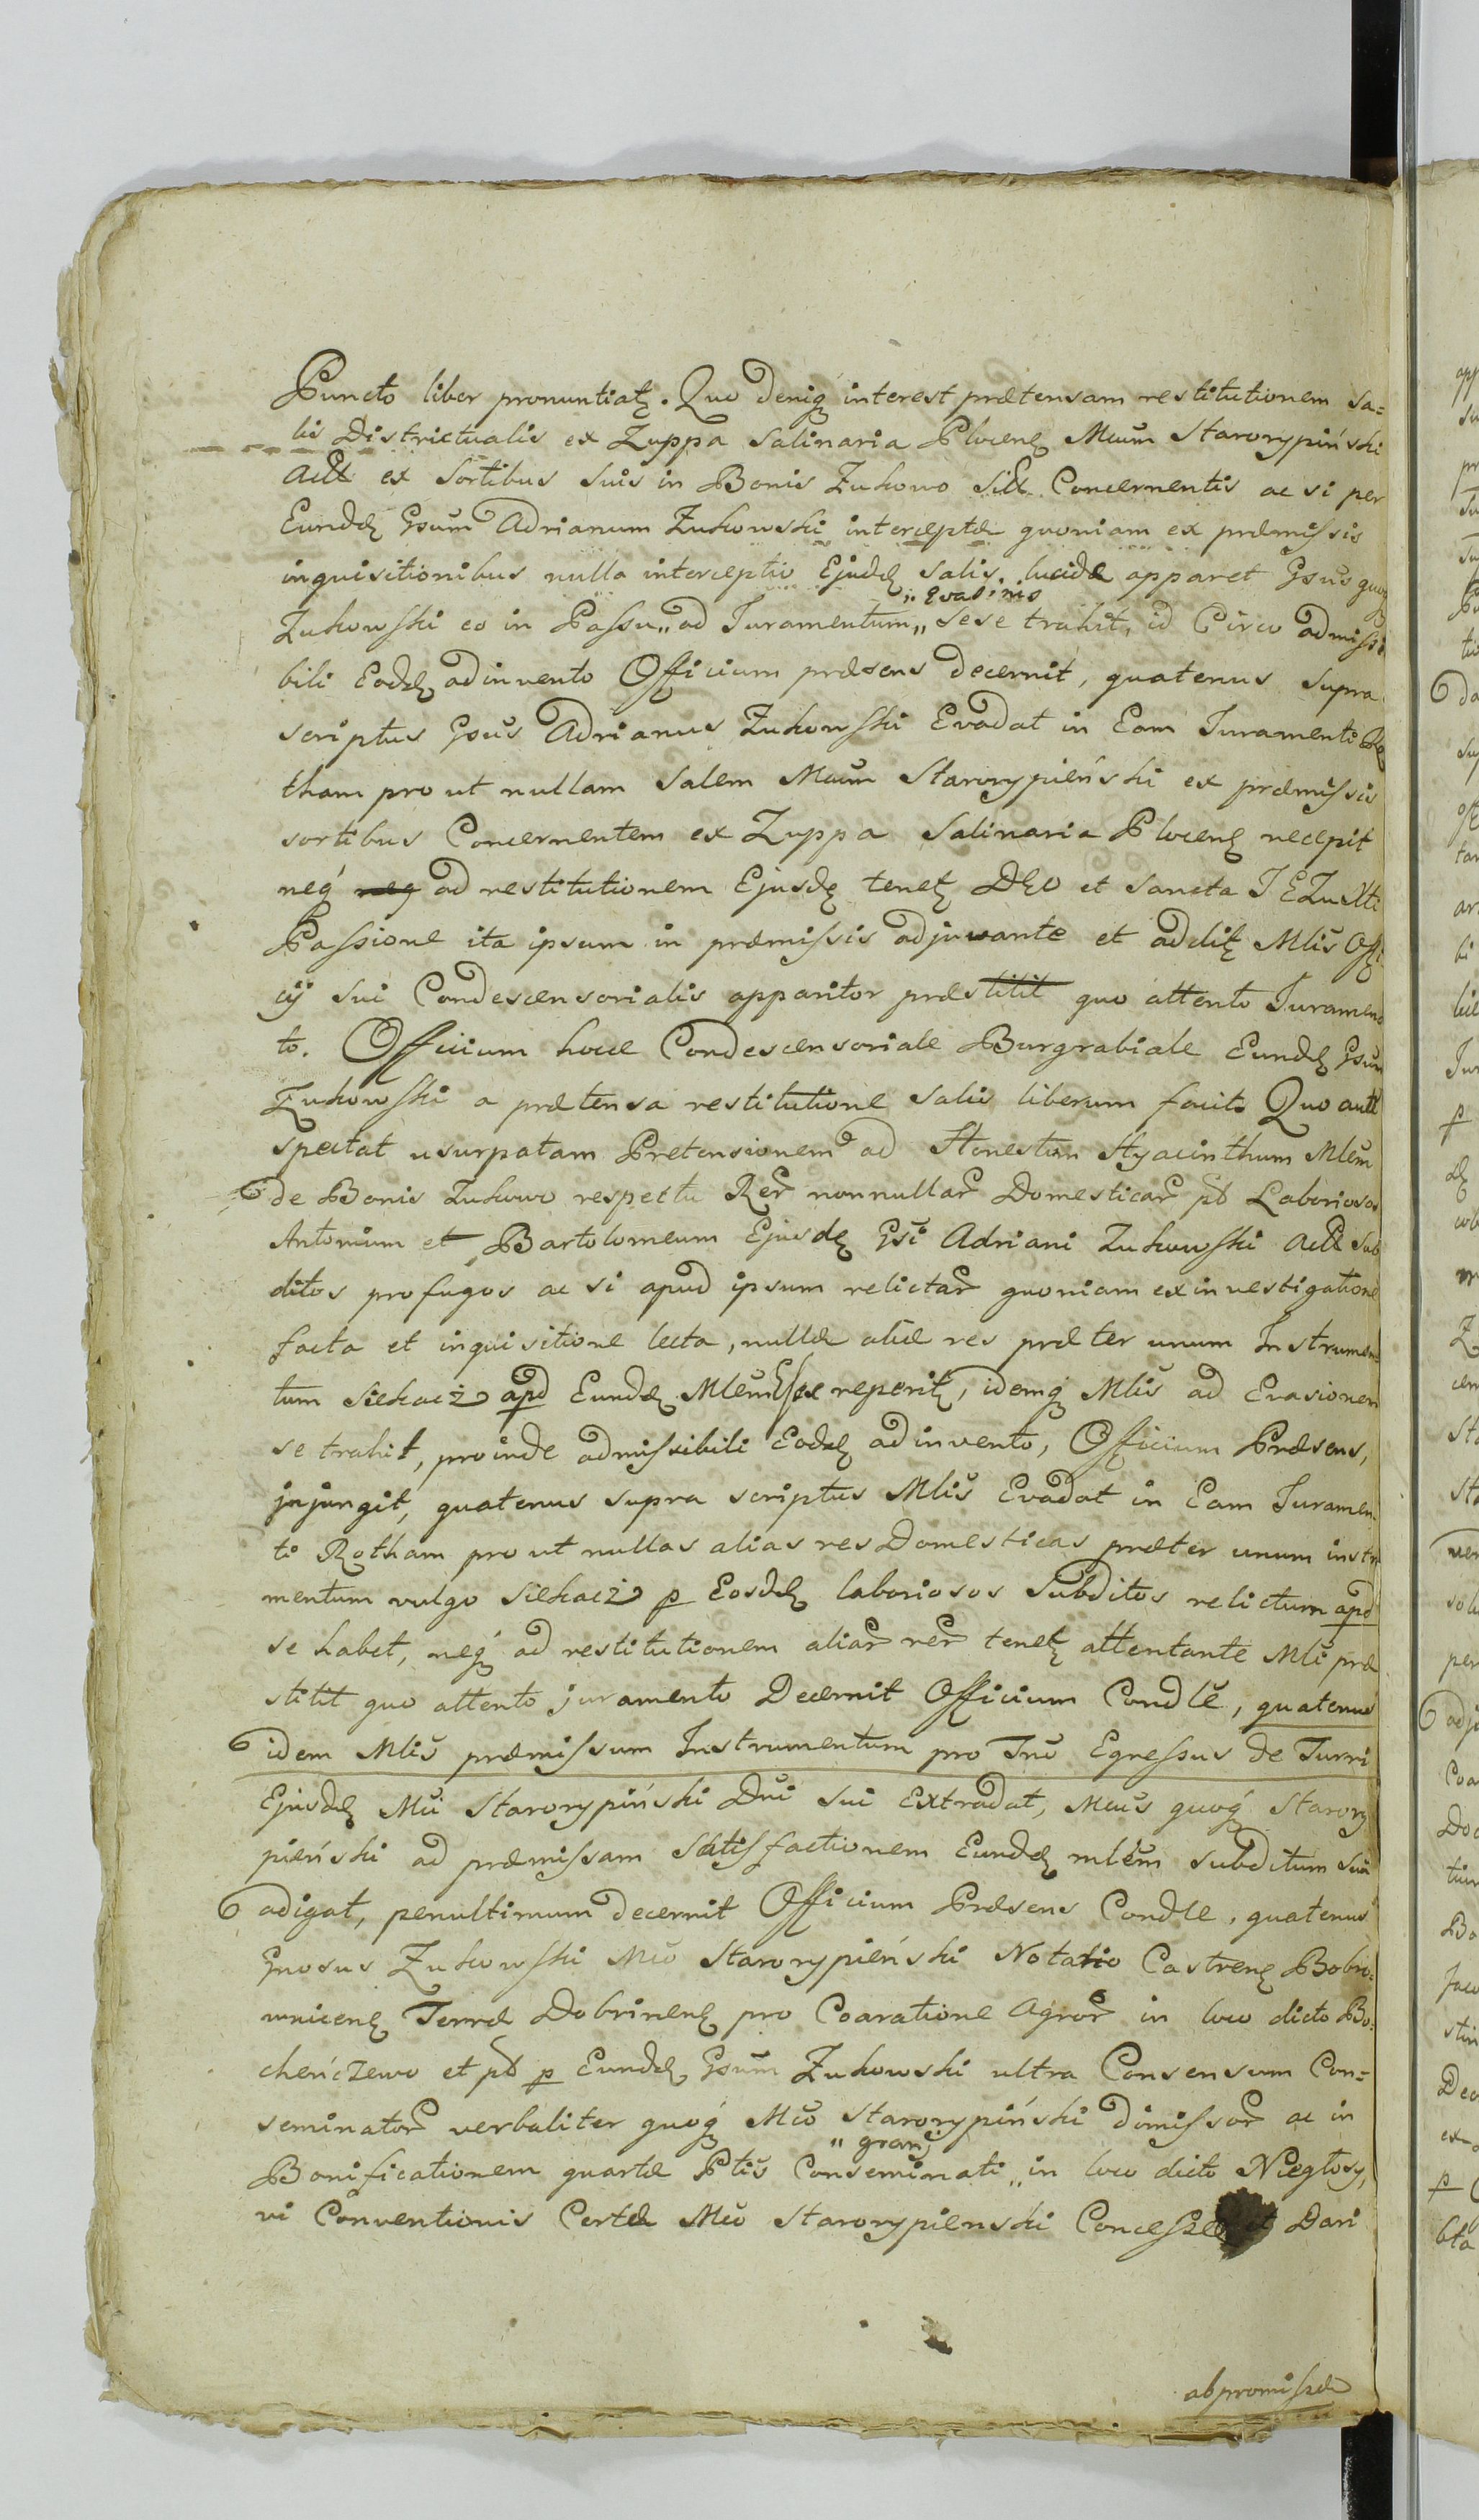 Puncto liber pronuntiatɀ. Quo deniq́ interest prætensam restitutionem sa=
lis Districtualis ex Zuppa Salinaria Plocenɀ Mcum Starorypiński
Actt ex Sortibus Suis in Bonis Zukowo Sitt Concernentis ac si per
Eundɀ Gsum Adrianum Zukowski interceptæ quoniam ex præmissis
inquisitionibus nulla interceptio Ejusdɀ Salis lucide apparet Gsus quoq́
Zukowski eo in Passu „ad Juramentum„ „Evasionis sese trahit, id Circo admissi
bili Eodɀ adinvento Officium præsens decernit, quatenus Supra
scriptus Gsus Adrianus Zukowski Evadat in Eam Juramenti Ro
tham prout nullam Salem Mcum Starorypieński ex præmissis
sortibus Concernentem ex Zuppa Salinaria Plocenɀ recepit
neq́ neq ad restitutionem Ejusdɀ tenetɀ DEO et Sancta JEZu Xti
Passione ita ipsum in præmissis adjuvante et additɀ Mlis Offi
cÿ sui Condescensorialis apparitor præstitit quo attento Juramen
to. Officium hocce Condescensoriale Burgrabiale Eundɀ Gsum
Zukowski a prætensa restitutione Salis liberum facit. Quo autt
spectat usurpatam Pretensionem ad Honestum Hyacinthum Mlem
de Bonis Zukowo respectu Rer nonnullar Domesticar pt Laboriosos
Antonium et Bartolomeum Ejusdɀ Gsi Adriani Zukowski Actt Sub
ditos profugos ac si apud ipsum relictar quoniam ex investigatione
facta et inquisitione lecta, nullæ aliæ res præter unum Instrumen
tum Siekacz apd Eundɀ Mlem Esse reperitɀ, idemq́ Mlis ad Evasionem
se trahit, proinde admissibili Eodɀ adinvento, Officium Præsens,
injungit, quatenus supra scriptus Mlis Evadat in Eam Juramen
ti Rotham prout nullas alias res Domesticas præter unum instru
mentum vulgo Siekacz p Eosdɀ laboriosos Subditos relictum apd
se habet, neq́ ad restitutionem aliar rer tenetɀ attentante Mli præ
stitit quo attento juramento Decernit Officium Condle, quatenus
idem Mlis præmissum Instrumentum pro Tno Egressus de Turri
Ejusdɀ Mci Starorypiński Dni sui Extradat, Mcus quoq́ Starory
pieński ad præmissam Satisfactionem Eundɀ mlem subditum suū
adigat, penultimum decernit Officium Præsens Condle, quatenus
Gnosus Zukowski Mco Starorypieński Notario Castrenɀ Bobro=
wnicenɀ Terræ Dobrinenɀ pro Coaratione Agror in loco dicto Bo=
cheńczewo et pt p Eundɀ Gsum Zukowski ultra Consensum Con=
seminator verbaliter quoq́ Mco Starorypiński dimissor ac in
Bonificationem quartæ Ptis Conseminati „ „grani in loco dicto Niegłosy,
vi Conventionis Certæ Mco Starorypienski Concessæ et Dari
abpromissæ